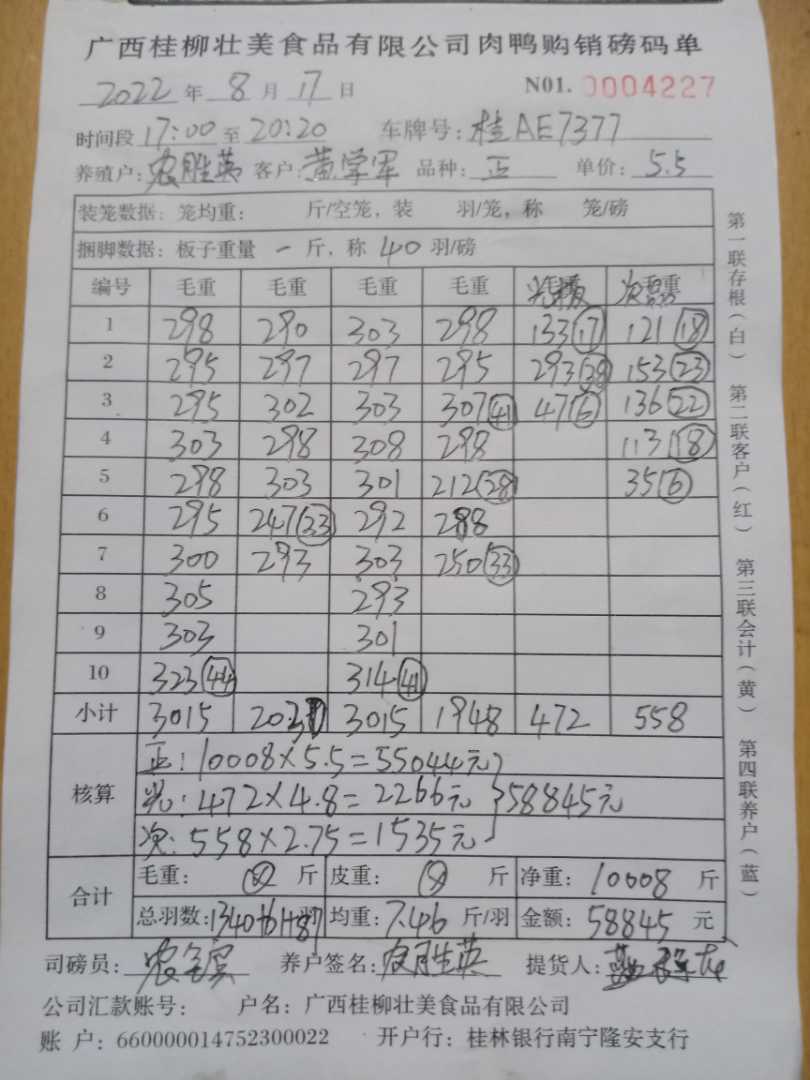 广西桂柳壮美食品有限公司肉鸭购销磅码单
2022 年 8 月 17 日 N01. 0004227
时间段 17:00 至 20:20 车牌号: 桂AE7377
养殖户: 农胜英 客户: 黄学军 品种: 正 单价: 5.5
装笼数据: 笼均重: 斤/空笼, 装 羽/笼, 称 笼/磅
捆脚数据: 板子重量 一 斤, 称 40 羽/磅
编号 毛重 毛重 毛重 毛重
1 298 290 303 298 133(17) 121(18)
2 295 297 297 295 293(38) 153(23)
3 295 302 303 307(41) 47(6) 136(22)
4 303 298 308 298 113(18)
5 298 303 301 212(28) 35(6)
6 295 247(33) 292 288
7 300 293 303 250(33)
8 305 293
9 303 301
10 323(44) 314(41)
小计 3015 2030 3015 1948 472 558
核算
正: 10008×5.5=55044元
光: 472×4.8=2266元 }58845元
次: 558×2.75=1535元
合计
毛重: 斤 皮重: 斤 净重: 10008 斤
总羽数: 1340+61+87 羽 均重: 7.46 斤/羽 金额: 58845 元
司磅员: 养户签名: 农胜英 提货人:
公司汇款账号: 户名: 广西桂柳壮美食品有限公司
账 户: 660000014752300022 开户行: 桂林银行南宁隆安支行
第一联存根(白) 第二联客户(红) 第三联会计(黄) 第四联养户(蓝)